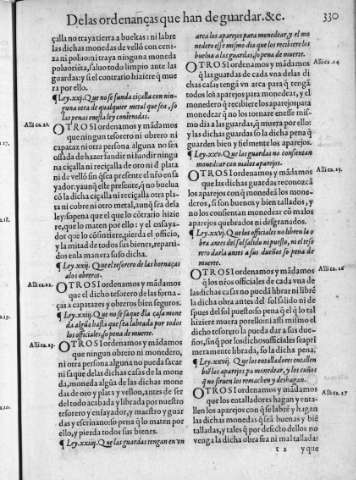 De las ordenanças que han de guardar. &c. 330
çalla no traya tierra a bueltas: ni labre
las dichas monedas de vellõ con ceni-
za ni poluo: ni traya ninguna moneda
saluo todo limpio ante las
guardas: y si el contrario hiziere q̃ mue
ra por ello.
¶ Ley. xxj. Que no se funda ciçalla con nin-
guna otra de qualquier metal que sea, so
las penas en esta ley contenidas.
Alli ca. 21.
OTROSI ordenamos y mãdamos
que ningun tesorero ni obrero ni
capataz ni otra persona alguna no sea
osada de hazer fundir ni fundir ningu
na ciçalla ni reçiçalla de oro ni d plata
ni de vellõ sin q̃ sea presente el ensa-
yador, y aun q̃ este presente, q̃ no buelua
cõ la dicha ciçalla ni reçiçalla otra pla
ta ni cobre ni otro metal, aun q̃ sea de la
ley so pena que el que lo cõtrario hizie
re, que lo maten por ello: y el ensaya-
dor que lo cõsintiere, pierda el officio,
y la mitad de todos sus bienes, reparti-
dos en la manera suso dicha.
¶ Ley. xxij. Que el tesorero de las hornaças
a los obreros.
Alli ca. 22.
OTROSI ordenamos y mãdamos
que el dicho tesorero de las horna-
ças a capatazes y obreros bien seguros.
¶ Ley. xxiij. Que no se saque dla casa mone
da algũa hasta que sea labrada por todos
los officiales, so pena de muerte.
Alli ca. 23.
OTROSI ordenamos y mãdamos
que ningun obrero ni monedero,
ni otra persona alguna no pueda sacar
ni saque de las dichas casas de la mone
da, moneda algũa de las dichas mone
das de oro y plata y vellon, antes de ser
del todo acabada y librada por nuestro
tesorero y ensayador, y maestro y guar
das y escriuano: so pena q̃ lo maten por
ello, y pierda todos sus bienes.
¶ Ley. xxiiij. Que las guardas tengan en vn
arca los aparejos para monedear, y el mo
nedero esse mismo dia que los recibiere los
buelua a las guardas, so pena de muerte.
Alli ca. 24.
OTROSI ordenamos y mãdamos
q̃ las guardas de cada vna delas di
chas casas tengã vn arca para q̃ tengã
todos los aparejos para monedear, y el
monedero q̃ recibiere los aparejos para
monedear q̃ no los tornare en esse mis-
mo dia a las guardas, q̃ muera por ello:
y las dichas guardas so la dicha pena q̃
guarden bien y fielmente los aparejos.
¶ Ley. xxv. Que las guardas no consientan
monedear con malos aparejos.
Alli ca. 25.
OTROSI ordenamos y mãdamos
que las dichas guardas reconozcã
los aparejos con q̃ monedeã los mone-
deros, si son buenos y bien tallados, y
no les consientan monedear cõ malos
aparejos quebrados ni desgranados.
¶ Ley. xxvj. Que los officiales no libren la o
bra antes del sol salido ni puesto, ni el teso
rero darla antes a sus dueños so pena de
muerte.
Alli ca. 26
OTROSI ordenamos y mãdamos
q̃ los n̄ros officiales de cada vna de
las dichas casas no pueda librar ni librẽ
la dicha obra antes del sol salido ni de
spues del sol puesto: so pena q̃ el q̃ lo tal
hiziere muera por ello: i assi mismo el
dicho tesorero la pueda dar a sus due-
ños, sin q̃ por los dichos officiales sea pri
meramente librada, so la dicha pena.
¶ Ley. xxvij. Que los entalladores entallen
biẽ los aparejos pa monedear, y los cuños
que se desgranaren los remachen y deshagan.
Alli ca. 27
OTROSI ordenamos y mãdamos
que los entalladores hagan y enta-
llen los aparejos con q̃ se labrẽ y hagan
las dichas monedas q̃ seã buenas y biẽ
talladas, y tales q̃ por defecto dellos no
venga la dicha obra fea ni mal tallada:
t 2 y que